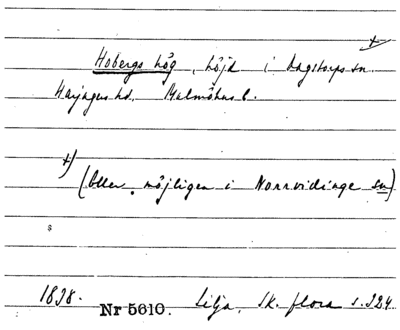 x)
Hobergs hög, höjd i Dagstorps sn.
Harjagers hd. Malmöhus l.
x) (Eller, möjligen i Norrvidinge sn)
1838. Nr 5610. Lilja, Sk. flora s. 324